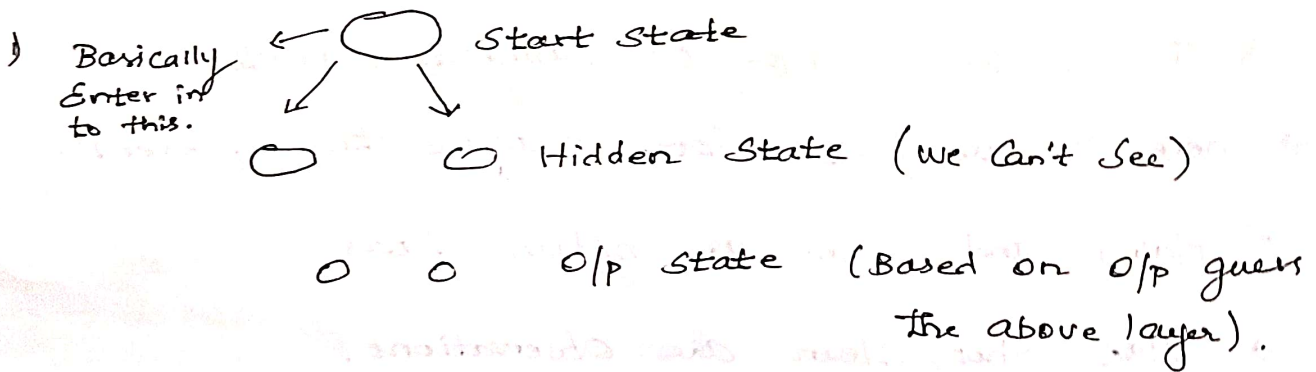 1) Basically
Enter in
to this.
Start State
Hidden State (we Can't See)
O/p State (Based on O/p guess
the above layer).